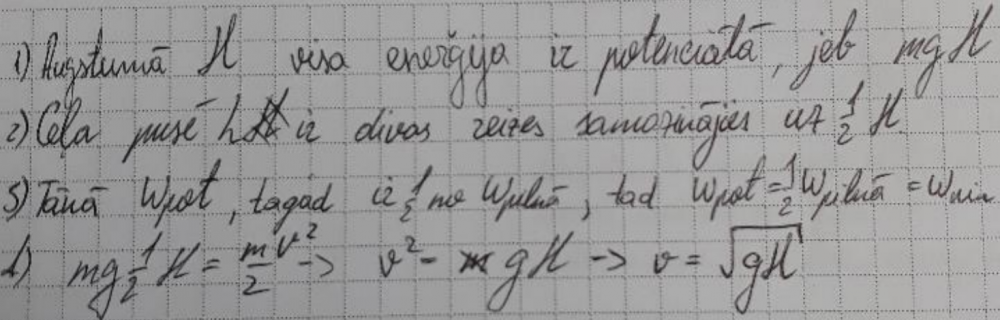 1) Augstumā H visa enerģija ir potenciālā, jeb mgH
2) Ceļa pusē h ir divas reizes samazinājies uz 1/2 H
3) Tānā Wpot, tagad ir 1/2 no Wpilnā, tad Wpot = 1/2 Wpilnā = Wkin
4) mg 1/2 H = m/2 v² -> v² - gH -> v = √gH